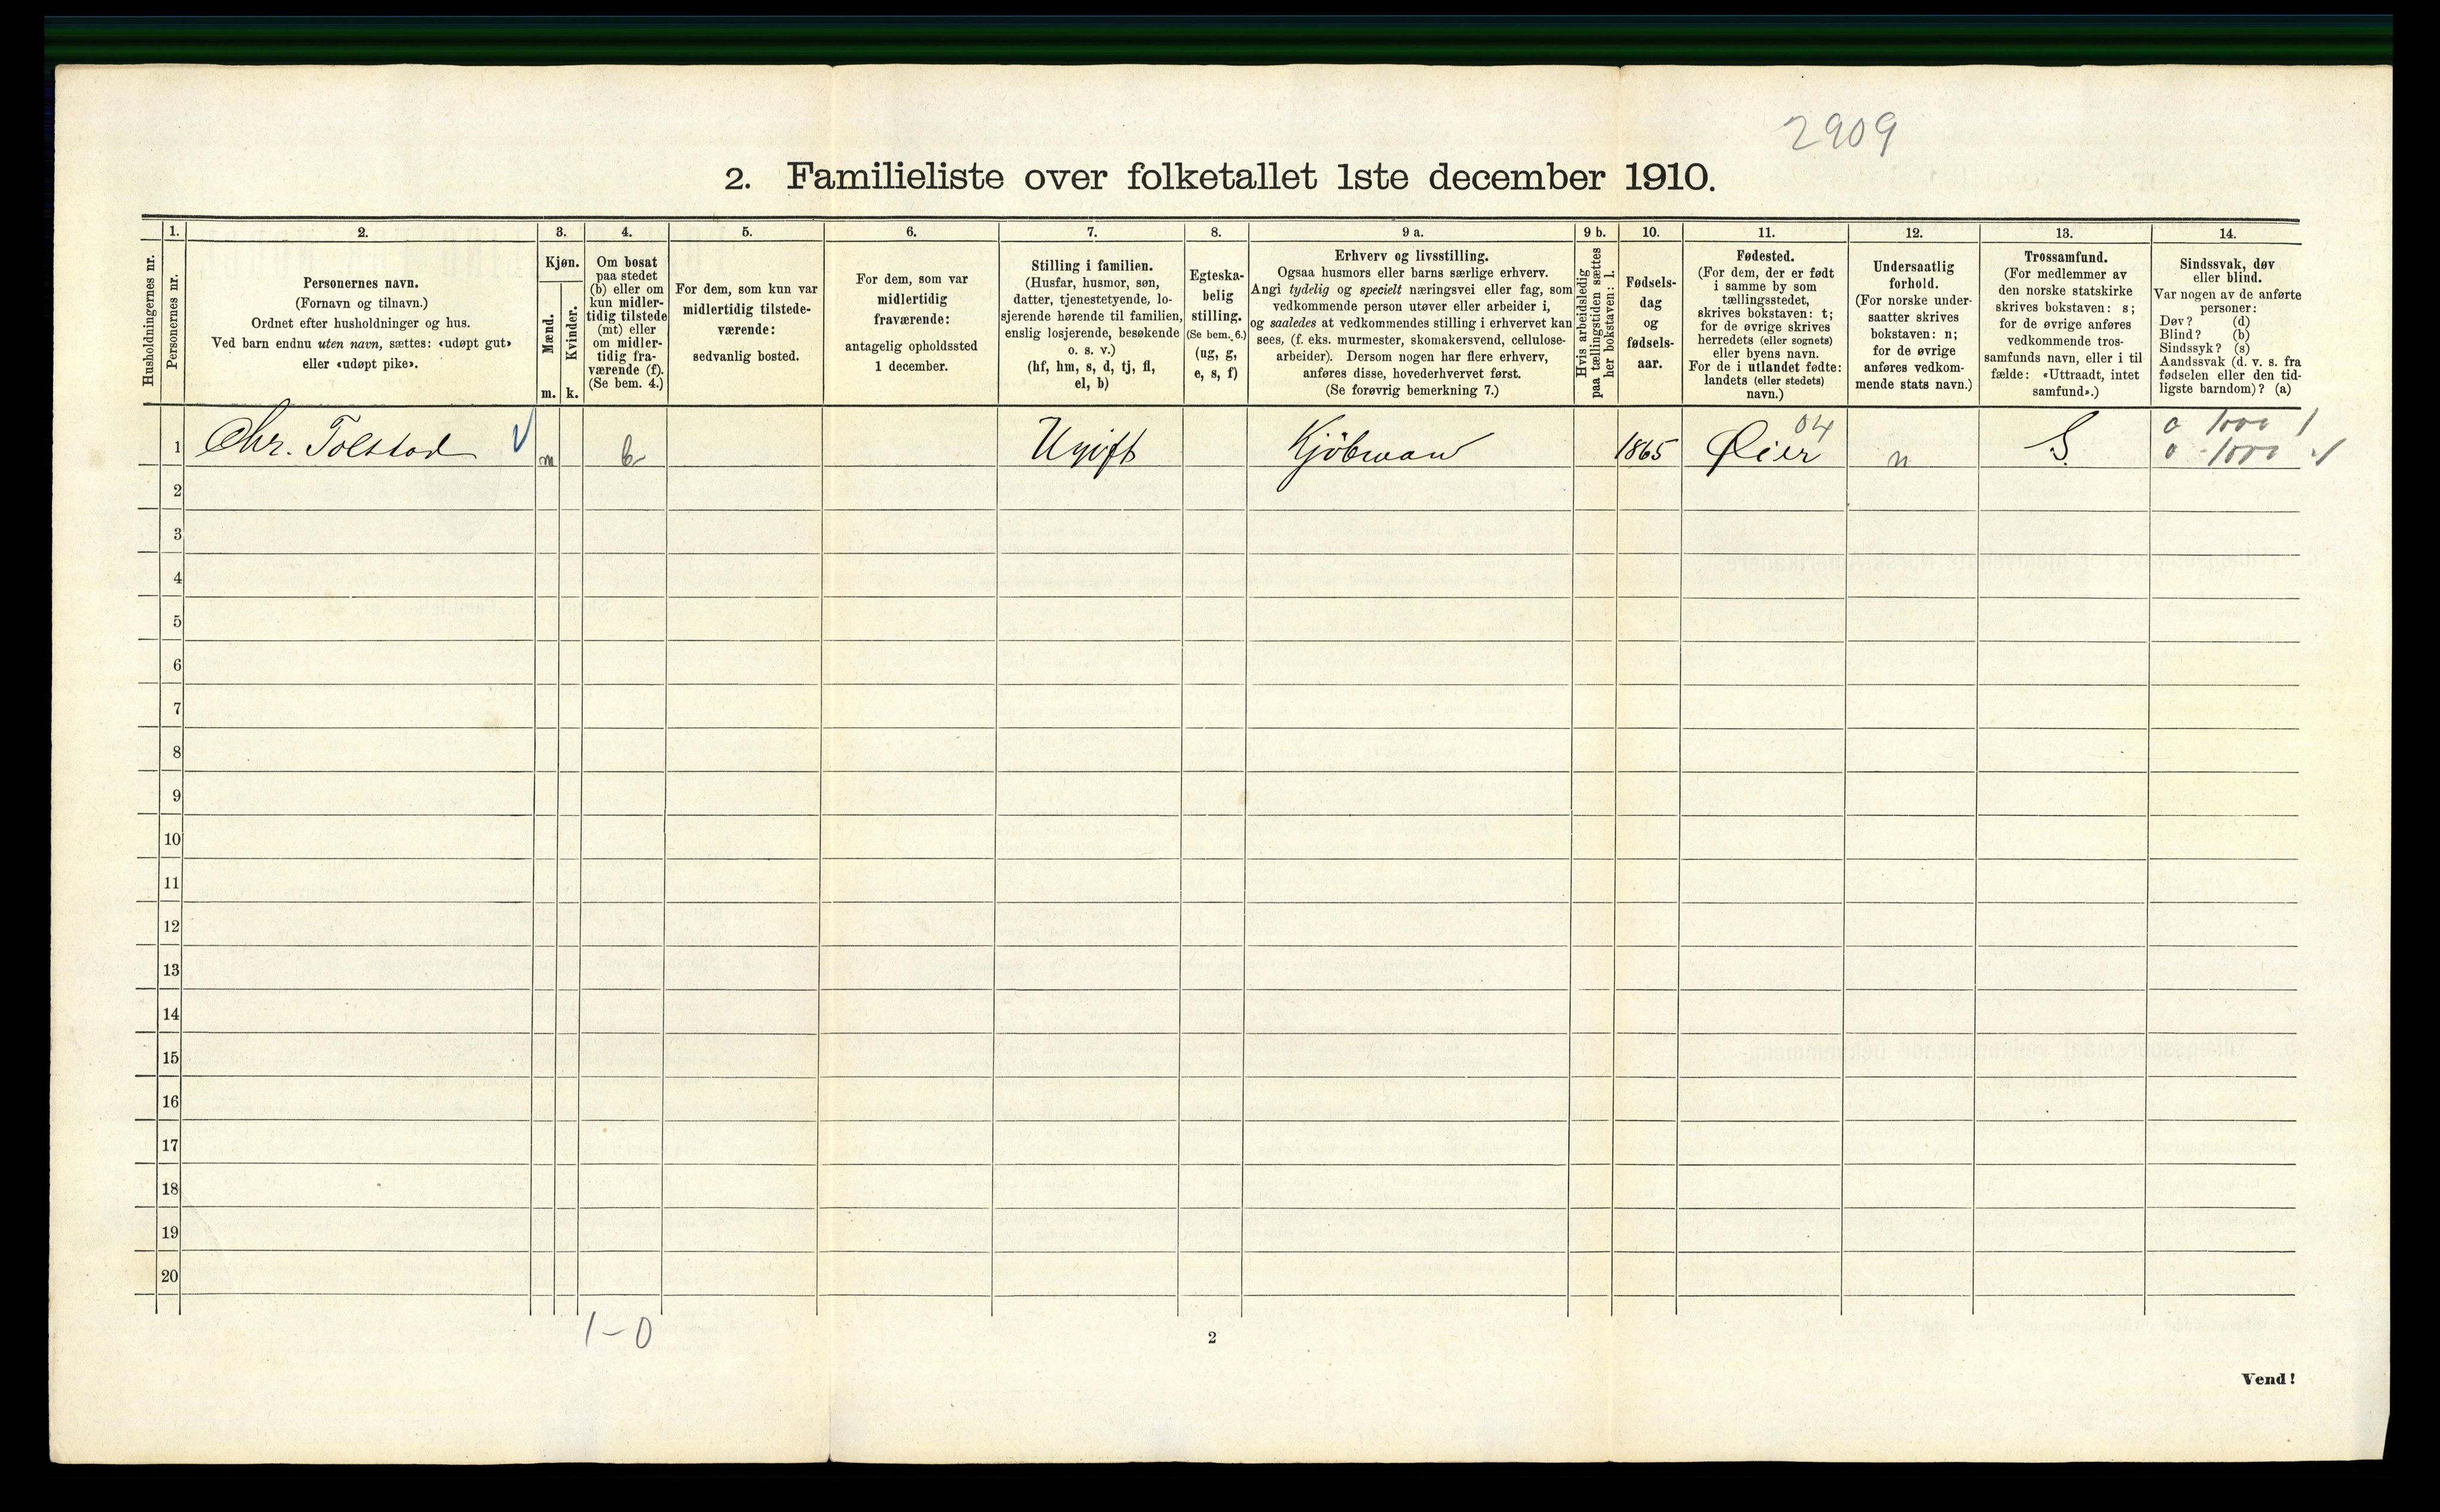 2909
2. Familieliste over folketallet 1ste december 1910.
Husholdningernes nr.
1.
Personernes nr.
2.
Personernes navn.
(Fornavn og tilnavn.)
Ordnet efter husholdninger og hus.
Ved barn endnu uten navn, sættes: «udøpt gut»
eller «udøpt pike».
3.
Kjøn.
Mænd.
Kvinder.
m.
k.
4.
Om bosat
paa stedet
(b) eller om
kun midler-
tidig tilstede
(mt) eller
om midler-
tidig fra-
værende (f).
(Se bem. 4.)
5.
For dem, som kun var
midlertidig tilstede-
værende:
sedvanlig bosted.
6.
For dem, som var
midlertidig
fraværende:
antagelig opholdssted
1 december.
7.
Stilling i familien.
(Husfar, husmor, søn,
datter, tjenestetyende, lo-
sjerende hørende til familien,
enslig losjerende, besøkende
o. s. v.)
(hf, hm, s, d, tj, fl,
el, b)
8.
Egteska-
belig
stilling.
(Se bem. 6.)
(ug, g,
e, s, f)
9 a.
Erhverv og livsstilling.
Ogsaa husmors eller barns særlige erhverv.
Angi tydelig og specielt næringsvei eller fag, som
vedkommende person utøver eller arbeider i,
og saaledes at vedkommendes stilling i erhvervet kan
sees, (f. eks. murmester, skomakersvend, cellulose-
arbeider). Dersom nogen har flere erhverv,
anføres disse, hovederhvervet først.
(Se forøvrig bemerkning 7.)
9 b.
Hvis arbeidsledig
paa tællingstiden sættes
her bokstaven: l.
10.
Fødsels-
dag
og
fødsels-
aar.
11.
Fødested.
(For dem, der er født
i samme by som
tællingsstedet,
skrives bokstaven: t;
for de øvrige skrives
herredets (eller sognets)
eller byens navn.
For de i utlandet fødte:
landets (eller stedets)
navn.)
12.
Undersaatlig
forhold.
(For norske under-
saatter skrives
bokstaven: n;
for de øvrige
anføres vedkom-
mende stats navn.)
13.
Trossamfund.
(For medlemmer av
den norske statskirke
skrives bokstaven: s;
for de øvrige anføres
vedkommende tros-
samfunds navn, eller i til
fælde: «Uttraadt, intet
samfund».)
14.
Sindssvak, døv
eller blind.
Var nogen av de anførte
personer:
Døv? (d)
Blind? (b)
Sindssyk? (s)
Aandssvak (d. v. s. fra
fødselen eller den tid-
ligste barndom)? (a)
04
0 1000 1
1 Chr. Tolstad m b Ugift Kjöbman 1865 Øier n S.
0 1000
2
3
4
5
6
7
8
9
10
11
12
13
14
15
16
17
18
19
20
1-0
2
Vend!